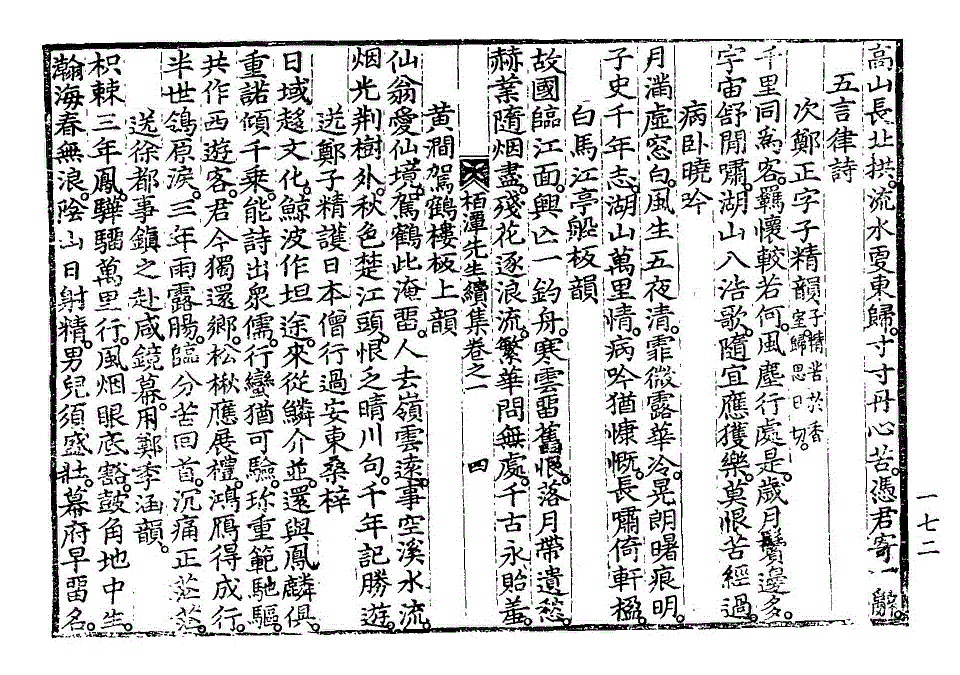 高山長北拱。流水更東歸。寸寸丹心苦。憑君寄一辭。
五言律詩
次鄭正字子精韻 子精苦於香室。歸思日切。
千里同爲客。羈懷較若何。風塵行處是。歲月鬢邊多。
宇宙舒閒嘯。湖山入浩歌。隨宜應獲樂。莫恨苦經過。
病卧曉吟
月滿虛窓白。風生五夜清。霏微露華冷。晃朗曙痕明。
子史千年志。湖山萬里情。病吟猶慷慨。長嘯倚軒楹。
白馬江亭船板韻
故國臨江面。興亡一釣舟。寒雲留舊恨。落月帶遺愁。
赫業隨烟盡。殘花逐浪流。繁華問無處。千古永貽羞。
栢潭先生續集卷之一 四
黃澗駕鶴樓板上韻
仙翁愛仙境。駕鶴此淹留。人去嶺雲遠。事空溪水流。
烟光荆樹外。秋色楚江頭。恨乏晴川句。千年記勝遊。
送鄭子精護日本僧行過安東桑梓
日域趍文化。鯨波作坦途。來從鱗介並。還與鳳麟俱。
重諾傾千乘。能詩出衆儒。行蠻猶可驗。珎重範馳驅。
共作西遊客。君今獨還鄉。松楸應展禮。鴻鴈得成行。
半世鴒原淚。三年雨露腸。臨分苦回首。沉痛正茫茫。
送徐都事鎭之赴咸鏡幕。用鄭季涵韻。
枳棘三年鳳。驊騮萬里行。風烟眼底豁。鼓角地中生。
瀚海春無浪。陰山日射精。男兒須盛壯。幕府早留名。
一七二